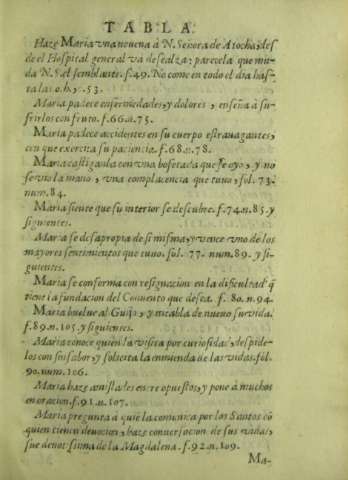 TABLA.
Haze Maria vna nouena à N. Señora de Atocha, des
de el Hospital general và descalza: parecela que mu-
da N. S. el semblante. f. 49. No come en todo el dia has-
ta las o. h. f. 53.
Maria padece enfermedades, y dolores, enseña à su-
frirlos con fruto. f. 66. n. 75.
Maria padece accidentes en su cuerpo estrauagantes,
con que exercita su paciencia. f. 68. n. 78.
Maria castigada con vna bofetada que se oyo, y no
se vio la mano, vna complacencia que tuuo, fol. 73.
num. 84.
Maria siente que su interior se descubre. f. 74. n. 85. y
siguientes.
Maria se desapropia de si misma, y vence vno de los
mayores sentimientos que tuuo. fol. 77. num. 89. y si-
guientes.
Maria se conforma con resignacion en la dificultad q̃
tiene la fundacion del Conuento que desea. f. 80. n. 94.
Maria buelue al Guijo, y entabla de nueuo su vida.
f. 89. n. 105. y siguientes.
Maria conoce quien la visita por curiosidad, despide-
los con sinsabor, y solicita la enmienda de las vidas. fol.
90. num. 106.
Maria haze amistades entre opuestos, y pone à muchos
en oracion. f. 91. n. 107.
Maria pregunta à quiē la comunica por los Santos cō
quien tienen deuocion, haze conuersacion de sus vidas,
fue deuotissima de la Magdalena. f. 92. n. 109.
Ma-